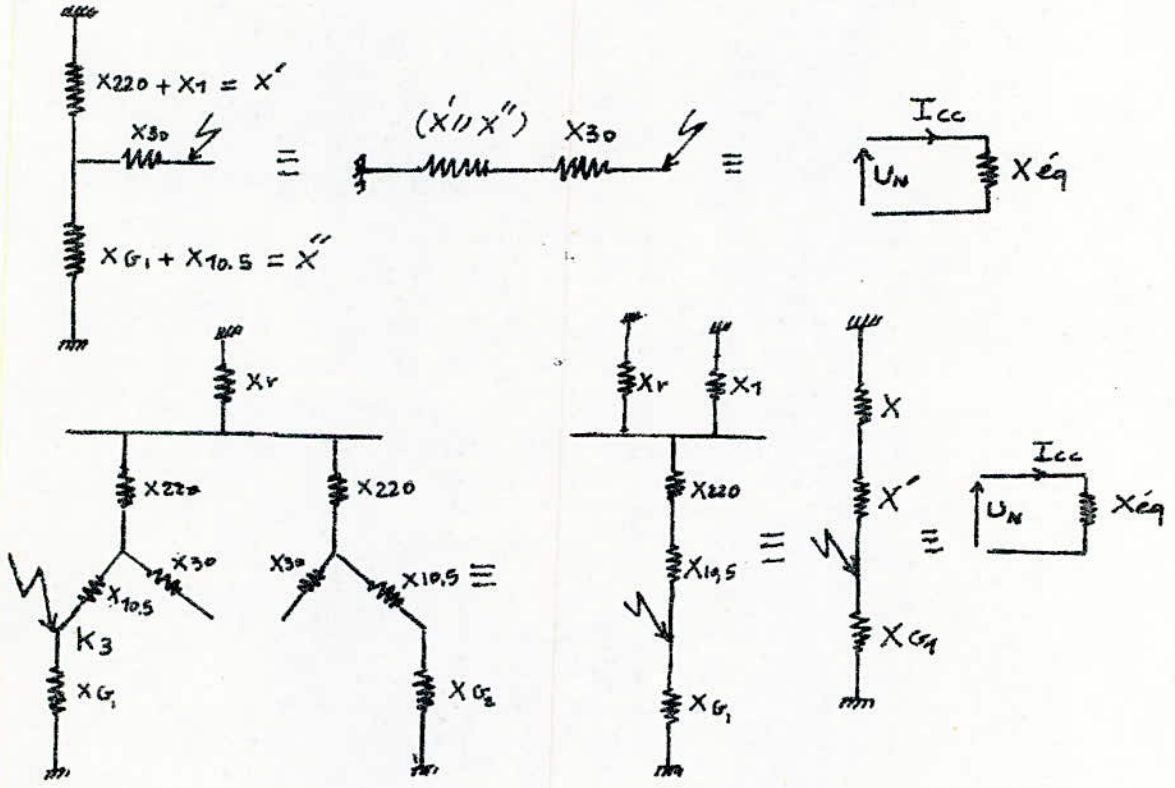 X220 + X1 = X'
X30
≡
(X' // X'')
X30
≡
Icc
UN
Xéq
XG1 + X10.5 = X''
Xr
X220
X220
X30
X10.5
K3
XG1
X30
X10,5
XG2
≡
Xr
X1
X220
X10,5
XG1
≡
X
X'
XG1
≡
Icc
UN
Xéq